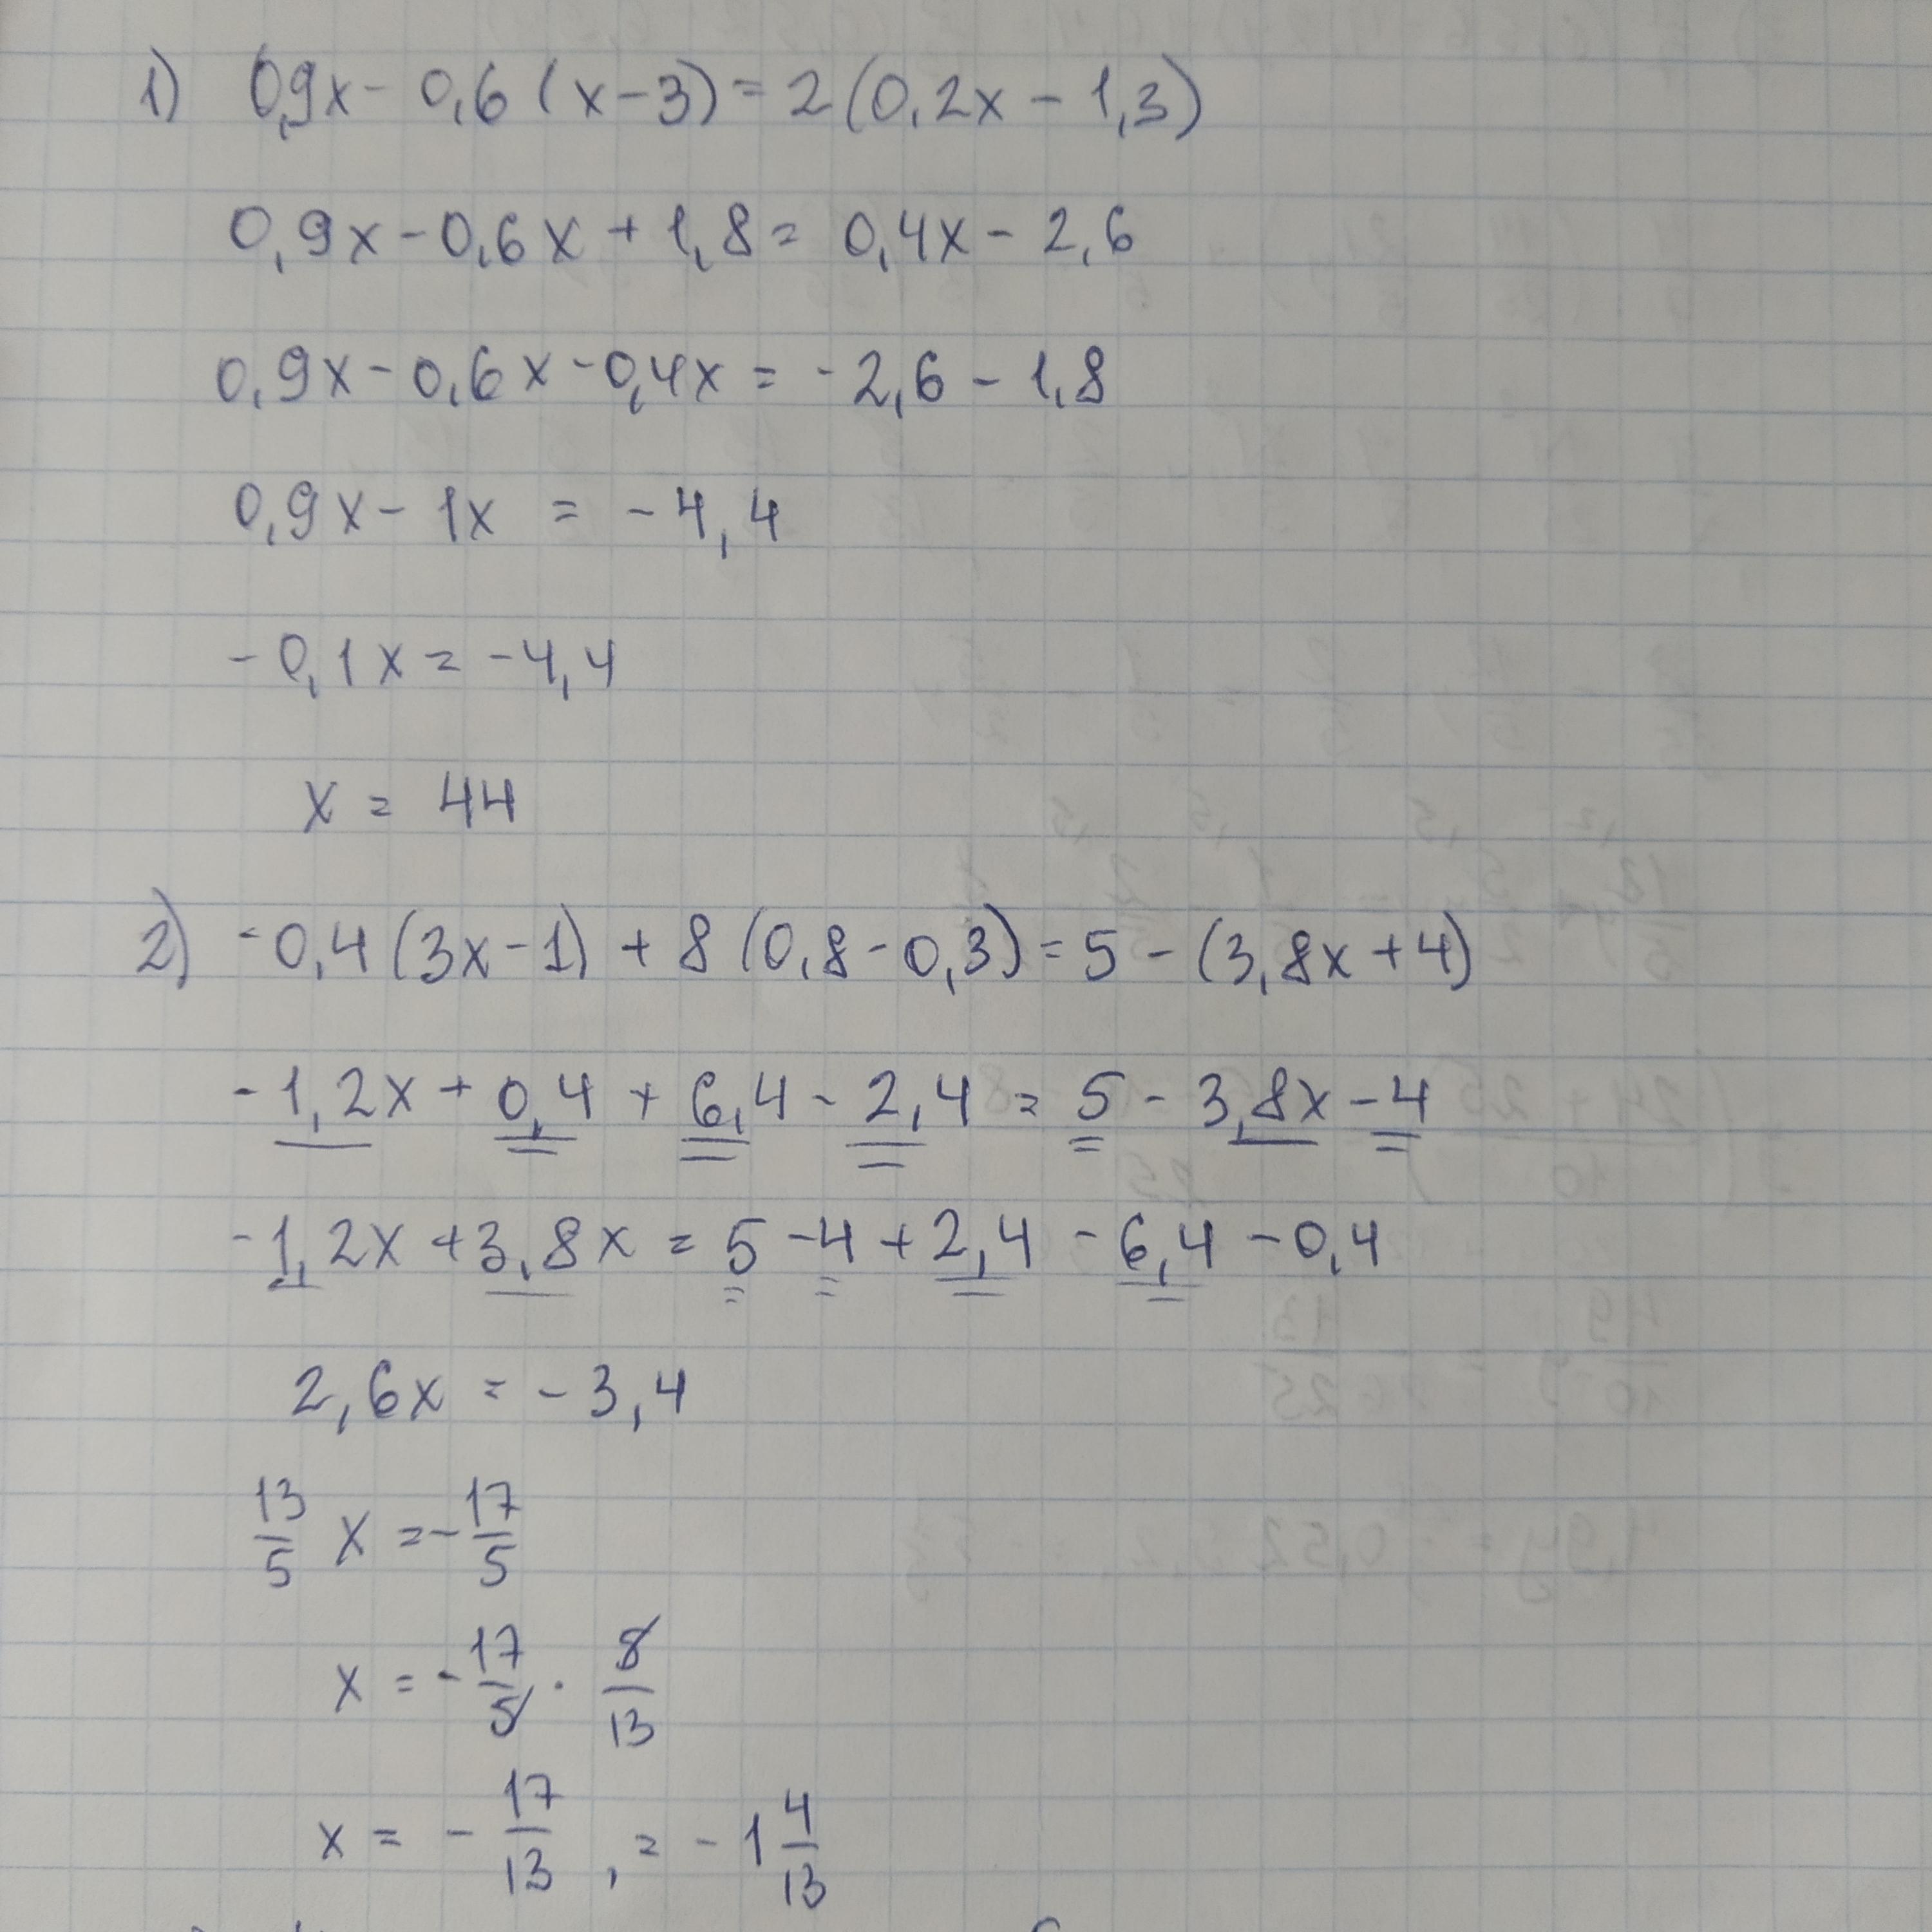 1) 0,9x - 0,6 (x - 3) = 2 (0,2x - 1,3)
0,9x - 0,6x + 1,8 = 0,4x - 2,6
0,9x - 0,6x - 0,4x = - 2,6 - 1,8
0,9x - 1x = - 4,4
- 0,1x = - 4,4
x = 44
2) - 0,4 (3x - 1) + 8 (0,8 - 0,3) = 5 - (3,8x + 4)
- 1,2x + 0,4 + 6,4 - 2,4 = 5 - 3,8x - 4
- 1,2x + 3,8x = 5 - 4 + 2,4 - 6,4 - 0,4
2,6x = - 3,4
13/5 x = - 17/5
x = - 17/5 · 8/13
x = - 17/13 , = - 1 4/13